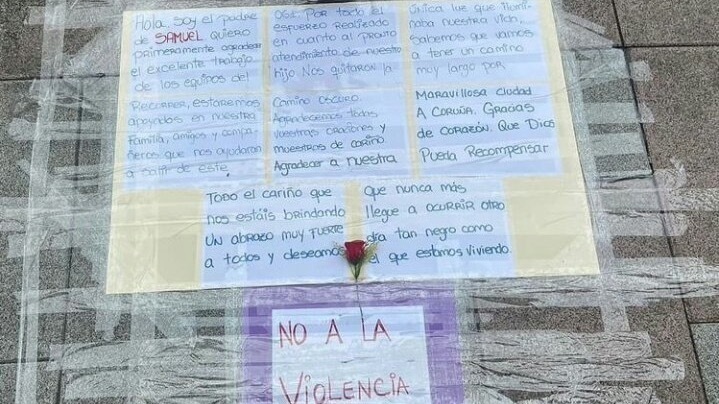 Hola, soy el padre
de SAMUEL quiero
primeramente agradecer
el excelente trabajo
de los equipos del
061. Por todo el
esfuerzo realizado
en cuanto al pronto
atendimento de nuestro
hijo Nos quitaron la
única luz que ilumi
naba nuestra vida,
Sabemos que vamos
a tener un camino
muy largo por
Recorrer, estaremos
apoyados en nuestra
familia, amigos y compa
ñeros que nos ayudaran
a salir de este
Camino oscuro.
Agradecemos todas
vuestras oraciones y
muestras de cariño
Agradecer a nuestra
Maravillosa ciudad
A Coruña. Gracias
de corazón. Que Dios
Pueda Recompensar
Todo el cariño que
nos estáis brindando
un abrazo muy fuerte
a todos y deseamos
que nunca más
llegue a ocurrir otro
día tan negro como
el que estamos viviendo.
NO A LA
VIOLENCIA